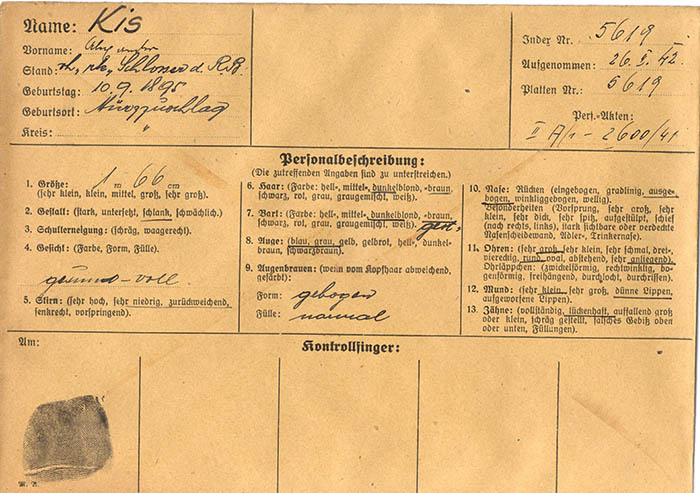 Name: Kis
Vorname: Alexander
Stand: Schlosser d. R.B.
Geburtstag: 10.9.1895
Geburtsort: Mürzzuschlag
Kreis: "
Index Nr. 5619
Aufgenommen: 26. I. 42
Platten Nr.: 5619
Pers.-Akten:
II A/1 - 2600/41
Personalbeschreibung:
(Die zutreffenden Angaben sind zu unterstreichen.)
1. Größe: 1 m 66 cm
(sehr klein, klein, mittel, groß, sehr groß).
2. Gestalt: (stark, untersetzt, schlank, schwächlich.)
3. Schulterneigung: (schräg, waagerecht).
4. Gesicht: (Farbe, Form, Fülle).
gesund - voll
5. Stirn: (sehr hoch, sehr niedrig, zurückweichend,
senkrecht, vorspringend).
6. Haar: (Farbe: hell-, mittel-, dunkelblond, -braun,
schwarz, rot, grau, graugemischt, weiß).
7. Bart: (Farbe: hell-, mittel-, dunkelblond, -braun,
schwarz, rot, grau, graugemischt, weiß).
8. Auge: (blau, grau, gelb, gelbrot, hell-, dunkel-
braun, schwarzbraun).
9. Augenbrauen: (wenn vom Kopfhaar abweichend,
gefärbt):
Form: gebogen
Fülle: normal
10. Nase: Rücken (eingebogen, gradlinig, ausge-
bogen, winkliggebogen, wellig).
Besonderheiten (Vorsprung, sehr groß, sehr
klein, sehr dick, sehr spitz, aufgestülpt, schief
(nach rechts, links), stark sichtbare oder verdeckte
Nasenscheidewand, Adler-, Trinkernase).
11. Ohren: (sehr groß, sehr klein, sehr schmal, drei-
viereckig, rund, oval, abstehend, sehr anliegend).
Ohrläppchen: (zwickelförmig, rechtwinklig, bo-
genförmig, freihängend, durchlocht, durchrissen).
12. Mund: (sehr klein, sehr groß, dünne Lippen,
aufgeworfene Lippen).
13. Zähne: (vollständig, lückenhaft, auffallend groß
oder klein, schräg gestellt, falsches Gebiß oben
oder unten, Füllungen).
Am:
Kontrollfinger: